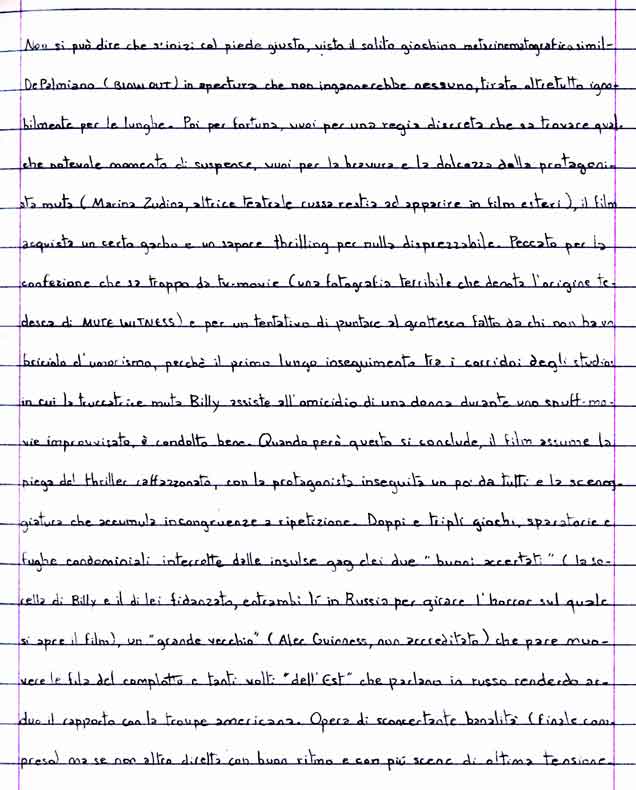 Non si può dire che s'inizi col piede giusto, visto il solito giochino metacinematografico simil-
DePalmiano (BLOW OUT) in apertura che non ingannerebbe nessuno, tirato oltretutto igno-
bilmente per le lunghe. Poi per fortuna, vuoi per una regia discreta che sa trovare qual-
che notevole momento di suspense, vuoi per la bravura e la dolcezza della protagoni-
sta muta (Marina Zudina, attrice teatrale russa restia ad apparire in film esteri), il film
acquista un certo garbo e un sapore thrilling per nulla disprezzabile. Peccato per la
confezione che sa troppo da tv-movie (una fotografia terribile che denota l'origine te-
desca di MUTE WITNESS) e per un tentativo di puntare al grottesco fatto da chi non ha un
briciolo d'umorismo, perché il primo lungo inseguimento tra i corridoi degli studios
in cui la truccatrice muta Billy assiste all'omicidio di una donna durante uno snuff-mo-
vie improvvisato, è condotto bene. Quando però questo si conclude, il film assume la
piega del thriller raffazzonato, con la protagonista inseguita un po' da tutti e la sceneg-
giatura che accumula incongruenze a ripetizione. Doppi e tripli giochi, sparatorie e
fughe condominiali interrotte dalle insulse gag dei due "buoni accertati" (la so-
rella di Billy e il di lei fidanzato, entrambi lì in Russia per girare l'horror sul quale
si apre il film), un "grande vecchio" (Alec Guinness, non accreditato) che pare muo-
vere le fila del complotto e tanti volti "dell'Est" che parlano in russo rendendo ar-
duo il rapporto con la troupe americana. Opera di sconcertante banalità (finale com-
preso) ma se non altro diretta con buon ritmo e con più scene di ottima tensione.